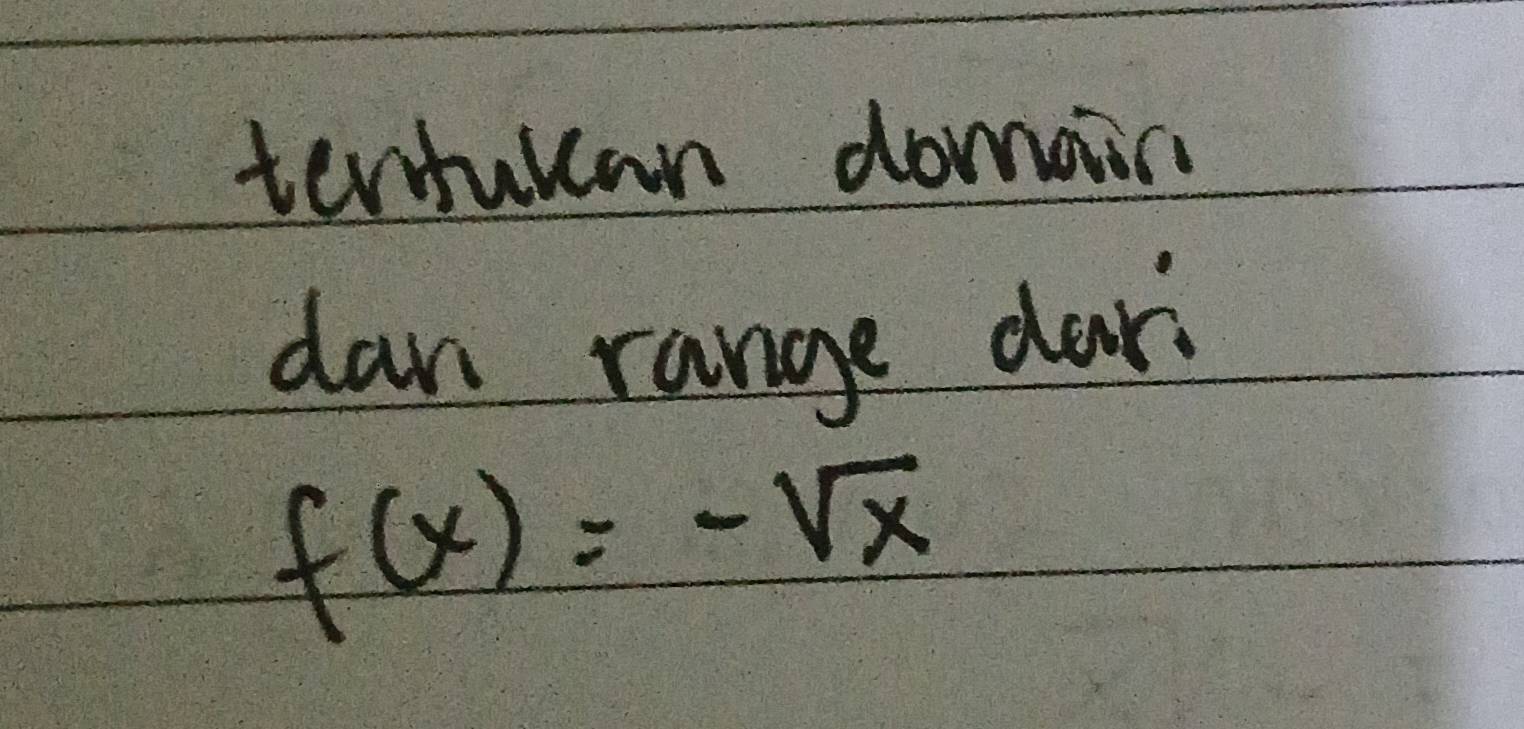 tentukan domain
dan range dari
f(x) = -√x